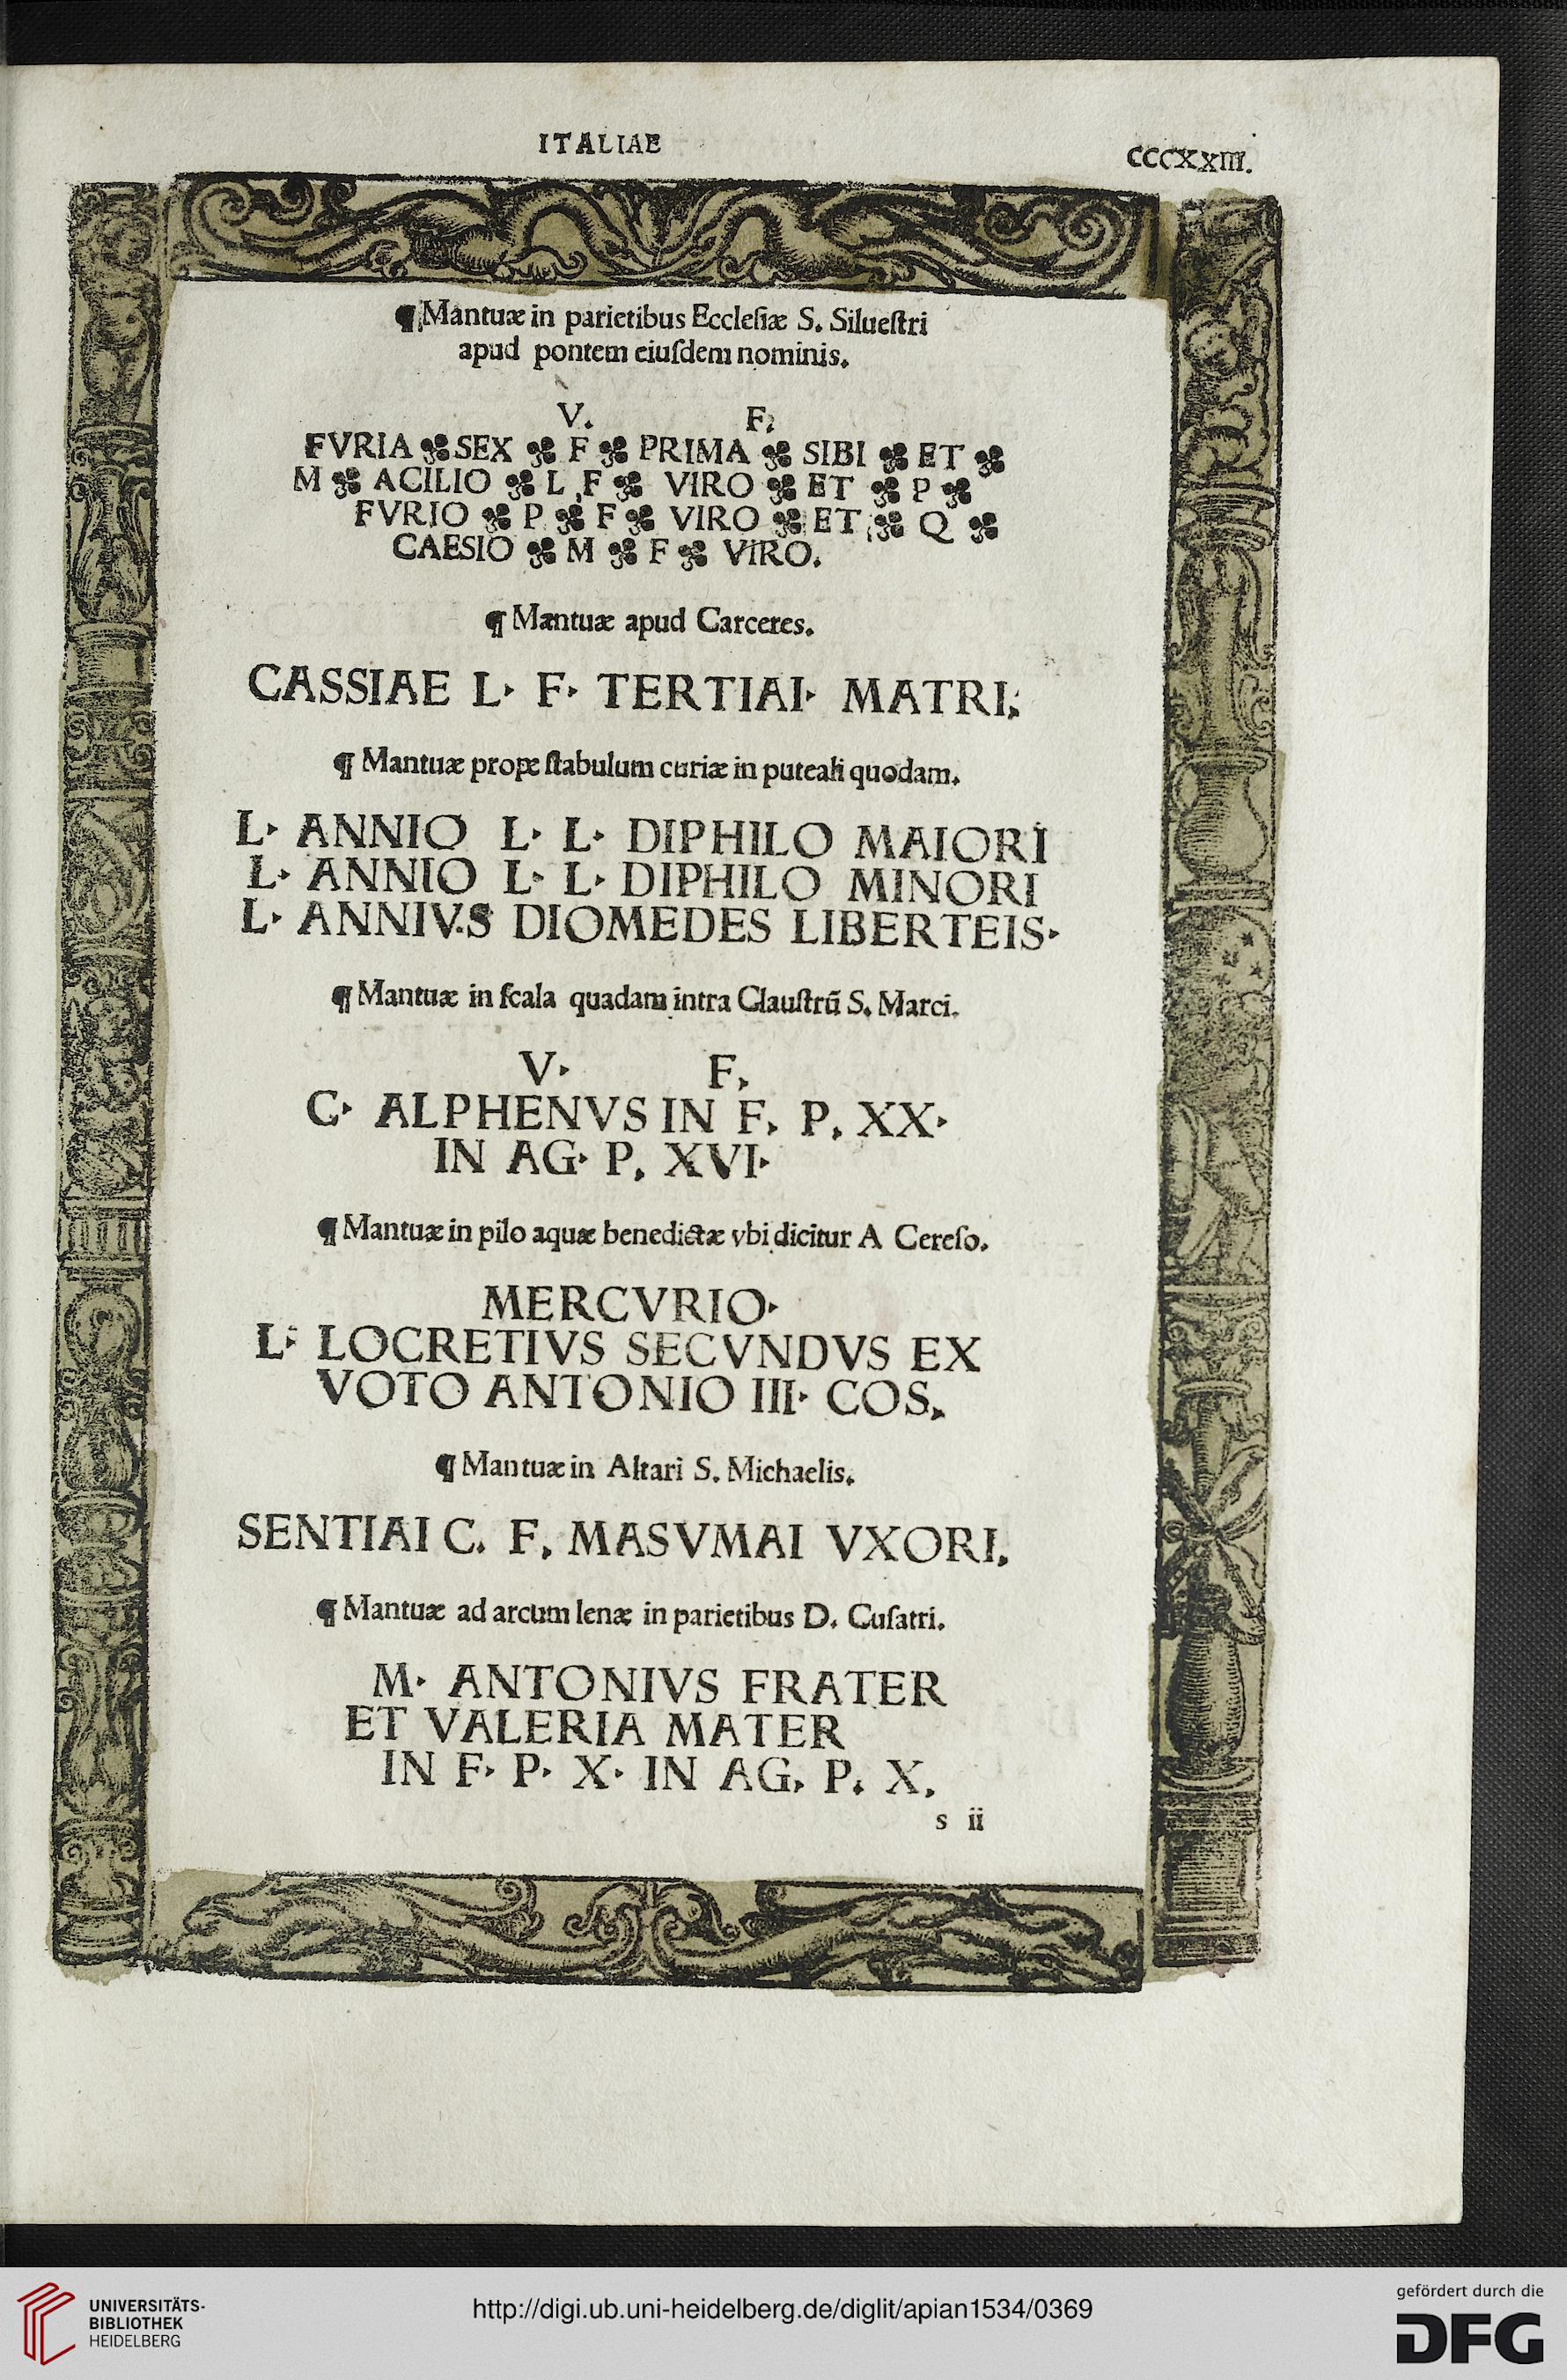 ITALIAE
CCCXXIII.
¶ Mantuæ in parietibus Eccleſiæ S. Silueſtri
apud pontem eiuſdem nominis.
V. F.
FVRIA ☙ SEX ☙ F ☙ PRIMA ☙ SIBI ☙ ET ☙
M ☙ ACILIO ☙ L F ☙ VIRO ☙ ET ☙ P ☙
FVRIO ☙ P ☙ F ☙ VIRO ☙ ET ☙ Q ☙
CAESIO ☙ M ☙ F ☙ VIRO.
¶ Mantuæ apud Carceres.
CASSIAE L· F· TERTIAI· MATRI.
¶ Mantuæ prope ſtabulum curiæ in puteali quodam.
L· ANNIO L· L· DIPHILO MAIORI
L· ANNIO L· L· DIPHILO MINORI
L· ANNIVS DIOMEDES LIBERTEIS·
¶ Mantuæ in ſcala quadam intra Clauſtrū S. Marci.
V· F.
C· ALPHENVS IN F. P. XX·
IN AG· P. XVI·
¶ Mantuæ in pilo aquæ benedictæ vbi dicitur A Cereſo.
MERCVRIO·
L· LOCRETIVS SECVNDVS EX
VOTO ANTONIO III· COS.
¶ Mantuæ in Altari S. Michaelis.
SENTIAI C. F. MASVMAI VXORI.
¶ Mantuæ ad arcum lenæ in parietibus D. Cuſatri.
M· ANTONIVS FRATER
ET VALERIA MATER
IN F· P· X· IN AG. P. X.
s ii
UNIVERSITÄTS-
BIBLIOTHEK
HEIDELBERG
http://digi.ub.uni-heidelberg.de/diglit/apian1534/0369
gefördert durch die
DFG